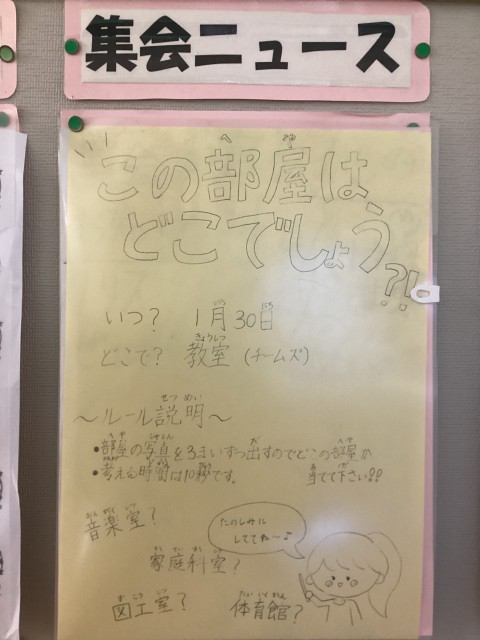 集会ニュース
この部屋は、
どこでしょう?!
いつ? 1月30日
どこで? 教室(チームズ)
〜ルール説明〜
・部屋の写真を3まいずつ出すのでどこの部屋か
当てて下さい!!
・考える時間は10秒です。
音楽室?
たのしみに
しててね〜♪
家庭科室?
図工室?
体育館?